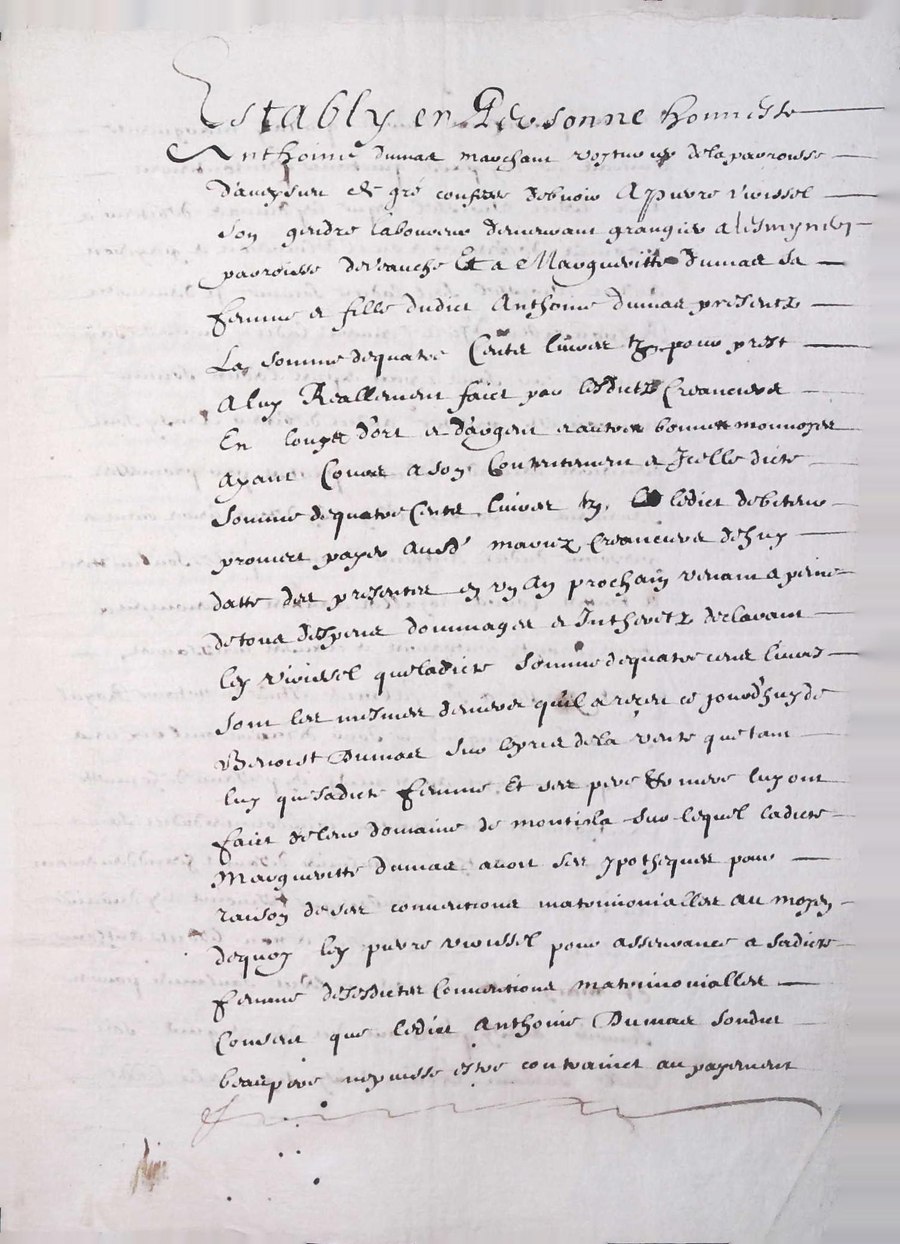 Estably en Personne honneste
Anthoine dumas marchant voytureur de la parroisse
de gré confesse debvoir A pierre vioissel
son gendre laboureur demeurant grangier a
parroisse de Et a Margueritte Dumas sa
femme et fille dudict Anthoine dumas presents
La somme de quatre Cents livres tz pour prest
A luy Reallement faict par lesdictz Creanciers
En louys d'ort et d'argent et autres bonnes monnoyes
ayant Cours a son Contentement et Icelle dicte
somme de quatre Cents livres tz ledict debiteur
promect payer ausd' mariez Creanciers d'huy
datte des presentes en un An prochain venant a peine
de tous despens dommages et Intherestz declarant
ley vioissel que ladicte somme de quatre cens livres
sont les mesmes deniers qu'il a reçeu ce jourd'huy de
Benoist Dumas sur le prix de la vente que tant
luy que sadicte femme Et ses pere & mere luy ont
faict de leur domaine de montisla sur lequel ladicte
Margueritte dumas avoit ses ypotheques pour
raison de ses conventions matrimonialles au moyen
dequoy ley pierre vioissel pour asseurance a sadicte
femme desdictes Conventions matrimonialles
Consent que ledict Anthoine Dumas sondict
beaupere ne puisse estre contrainct au payement